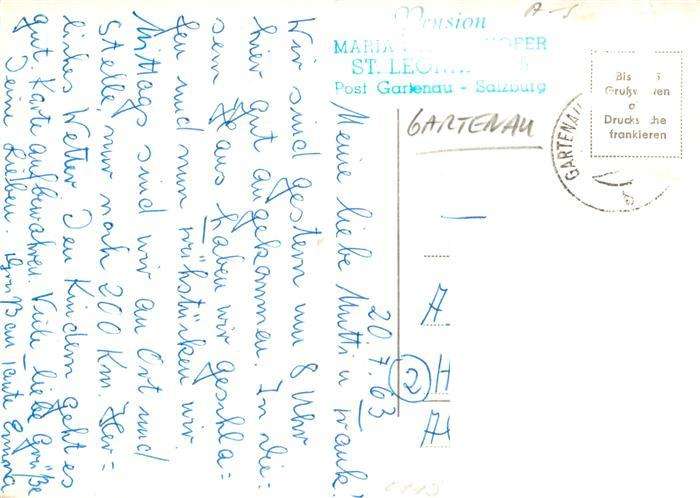 Pension
MARIA HOFER
ST. LEON
Post Gartenau - Salzburg
GARTENAU
A-5
Bis 5
Grußw en
a
Drucks che
frankieren
GARTENAU
20.7.63
Meine liebe Mutti u Frank!
Wir sind gestern um 8 Uhr
hier gut angekommen. In die=
sem Haus haben wir geschla=
fen und nun frühstücken wir.
Mittags sind wir an Ort und
Stelle, nur noch 200 Km. Herr=
liches Wetter. Den Kindern geht es
gut. Karte aufbewahren. Viele liebe Grüße
Deine Lieben. Grüß an Tante Emma
A
2 H
A